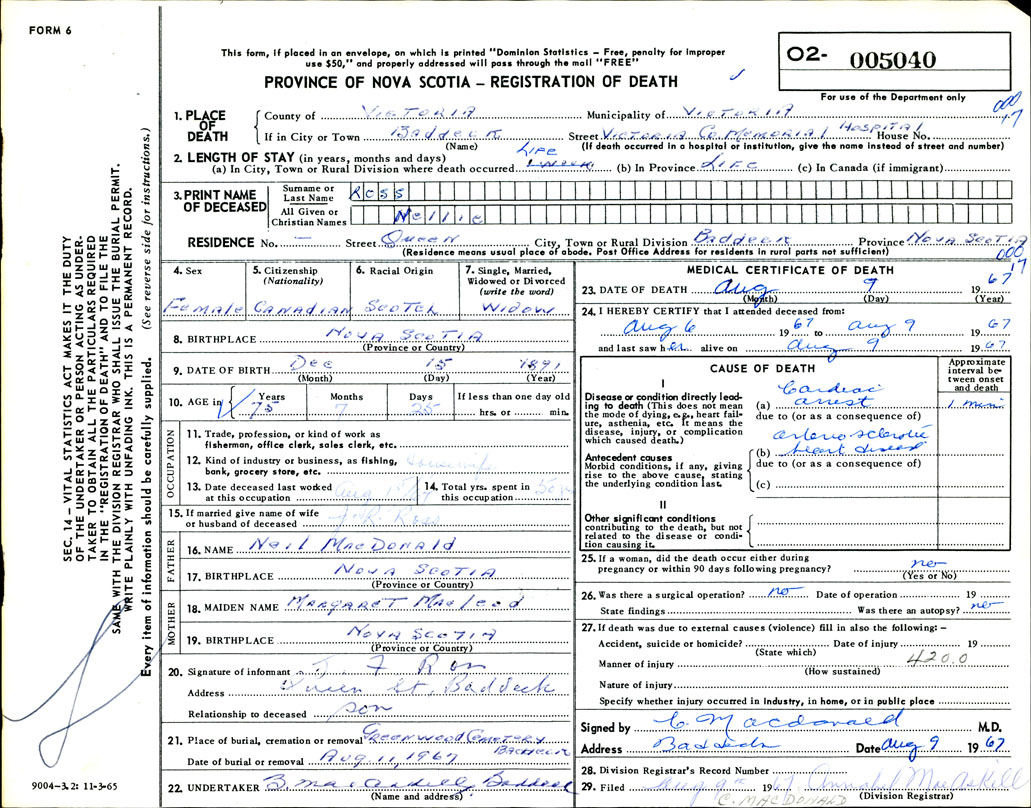 FORM 6
This form, if placed in an envelope, on which is printed "Dominion Statistics – Free, penalty for improper
use $50," and properly addressed will pass through the mail "FREE"
PROVINCE OF NOVA SCOTIA – REGISTRATION OF DEATH
O2- 005040
For use of the Department only
000
17
1. PLACE OF DEATH
County of VICTORIA Municipality of VICTORIA
If in City or Town BADDECK Street VICTORIA CO. MEMORIAL HOSPITAL House No.
(Name) (If death occurred in a hospital or institution, give the name instead of street and number)
2. LENGTH OF STAY (in years, months and days)
LIFE
(a) In City, Town or Rural Division where death occurred 1 WEEK (b) In Province LIFE (c) In Canada (if immigrant)
3. PRINT NAME OF DECEASED
Surname or Last Name ROSS
All Given or Christian Names Nellie
RESIDENCE No. – Street QUEEN City, Town or Rural Division BADDECK Province NOVA SCOTIA
(Residence means usual place of abode. Post Office Address for residents in rural parts not sufficient)
000
17
4. Sex
Female
5. Citizenship
(Nationality)
CANADIAN
6. Racial Origin
SCOTCH
7. Single, Married, Widowed or Divorced
(write the word)
WIDOW
8. BIRTHPLACE NOVA SCOTIA
(Province or Country)
9. DATE OF BIRTH Dec 15 1891
(Month) (Day) (Year)
10. AGE in Years Months Days If less than one day old
75 7 25 hrs. or min.
OCCUPATION
11. Trade, profession, or kind of work as
fisherman, office clerk, sales clerk, etc.
12. Kind of industry or business, as fishing,
bank, grocery store, etc. Housewife
13. Date deceased last worked
at this occupation Aug 1
14. Total yrs. spent in
this occupation
15. If married give name of wife
or husband of deceased J. R. Ross
FATHER
16. NAME Neil MacDonald
17. BIRTHPLACE NOVA SCOTIA
(Province or Country)
MOTHER
18. MAIDEN NAME MARGARET MacLeod
19. BIRTHPLACE NOVA SCOTIA
(Province or Country)
20. Signature of informant J F Ross
Address Queen St. Baddeck
Relationship to deceased son
21. Place of burial, cremation or removal GREENWOOD CEMETERY
BADDECK
Date of burial or removal AUG 11, 1967
22. UNDERTAKER Baddeck
(Name and address)
MEDICAL CERTIFICATE OF DEATH
23. DATE OF DEATH Aug 9 1967
(Month) (Day) (Year)
24. I HEREBY CERTIFY that I attended deceased from:
Aug 6 1967 to Aug 9 1967
and last saw her alive on Aug 9 1967
CAUSE OF DEATH
Approximate interval between onset and death
I
Disease or condition directly lead-
ing to death (This does not mean
the mode of dying, e.g., heart fail-
ure, asthenia, etc. It means the
disease, injury, or complication
which caused death.)
Cardiac
(a) arrest 1 min
due to (or as a consequence of)
Antecedent causes
Morbid conditions, if any, giving
rise to the above cause, stating
the underlying condition last.
arterio sclerotic
(b) heart disease
due to (or as a consequence of)
(c)
II
Other significant conditions
contributing to the death, but not
related to the disease or condi-
tion causing it.
25. If a woman, did the death occur either during
pregnancy or within 90 days following pregnancy? no
(Yes or No)
26. Was there a surgical operation? no Date of operation 19
State findings Was there an autopsy? no
27. If death was due to external causes (violence) fill in also the following: –
Accident, suicide or homicide? Date of injury 19
(State which)
Manner of injury 420.0
(How sustained)
Nature of injury
Specify whether injury occurred in industry, in home, or in public place
Signed by C. Macdonald M.D.
Address Baddeck Date Aug 9 1967
28. Division Registrar's Record Number
29. Filed Aug 9 1967 Annabel MacAskill
C. MACDONALD (Division Registrar)
SEC. 14 – VITAL STATISTICS ACT MAKES IT THE DUTY
OF THE UNDERTAKER OR PERSON ACTING AS UNDER-
TAKER TO OBTAIN ALL THE PARTICULARS REQUIRED
IN THE "REGISTRATION OF DEATH" AND TO FILE THE
SAME WITH THE DIVISION REGISTRAR WHO SHALL ISSUE THE BURIAL PERMIT.
WRITE PLAINLY WITH UNFADING INK. THIS IS A PERMANENT RECORD.
Every item of information should be carefully supplied. (See reverse side for instructions.)
9004-3.2: 11-3-65